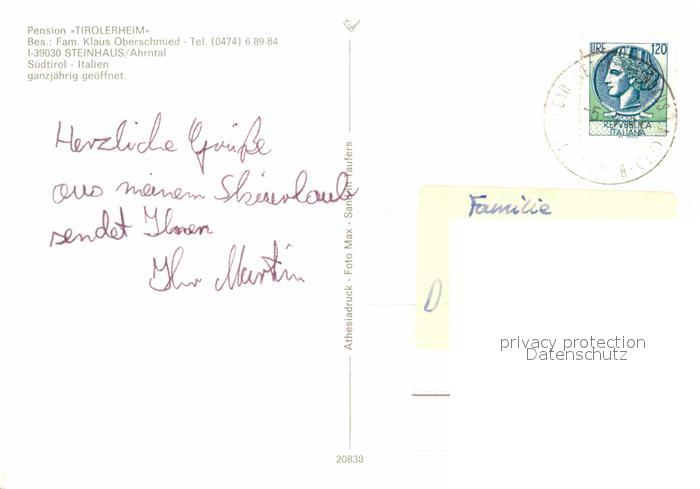 Pension »TIROLERHEIM«
Bes.: Fam. Klaus Oberschmied - Tel. (0474) 6 89 84
I-39030 STEINHAUS/Ahrntal
Südtirol - Italien
ganzjährig geöffnet.
Herzliche Grüße
aus meinem Skiurlaub
sendet Ihnen
Ihr Martin
Athesiadruck - Foto Max - Sand Taufers
20838
LIRE 120
REPVBBLICA
ITALIANA
Familie
D
privacy protection
Datenschutz